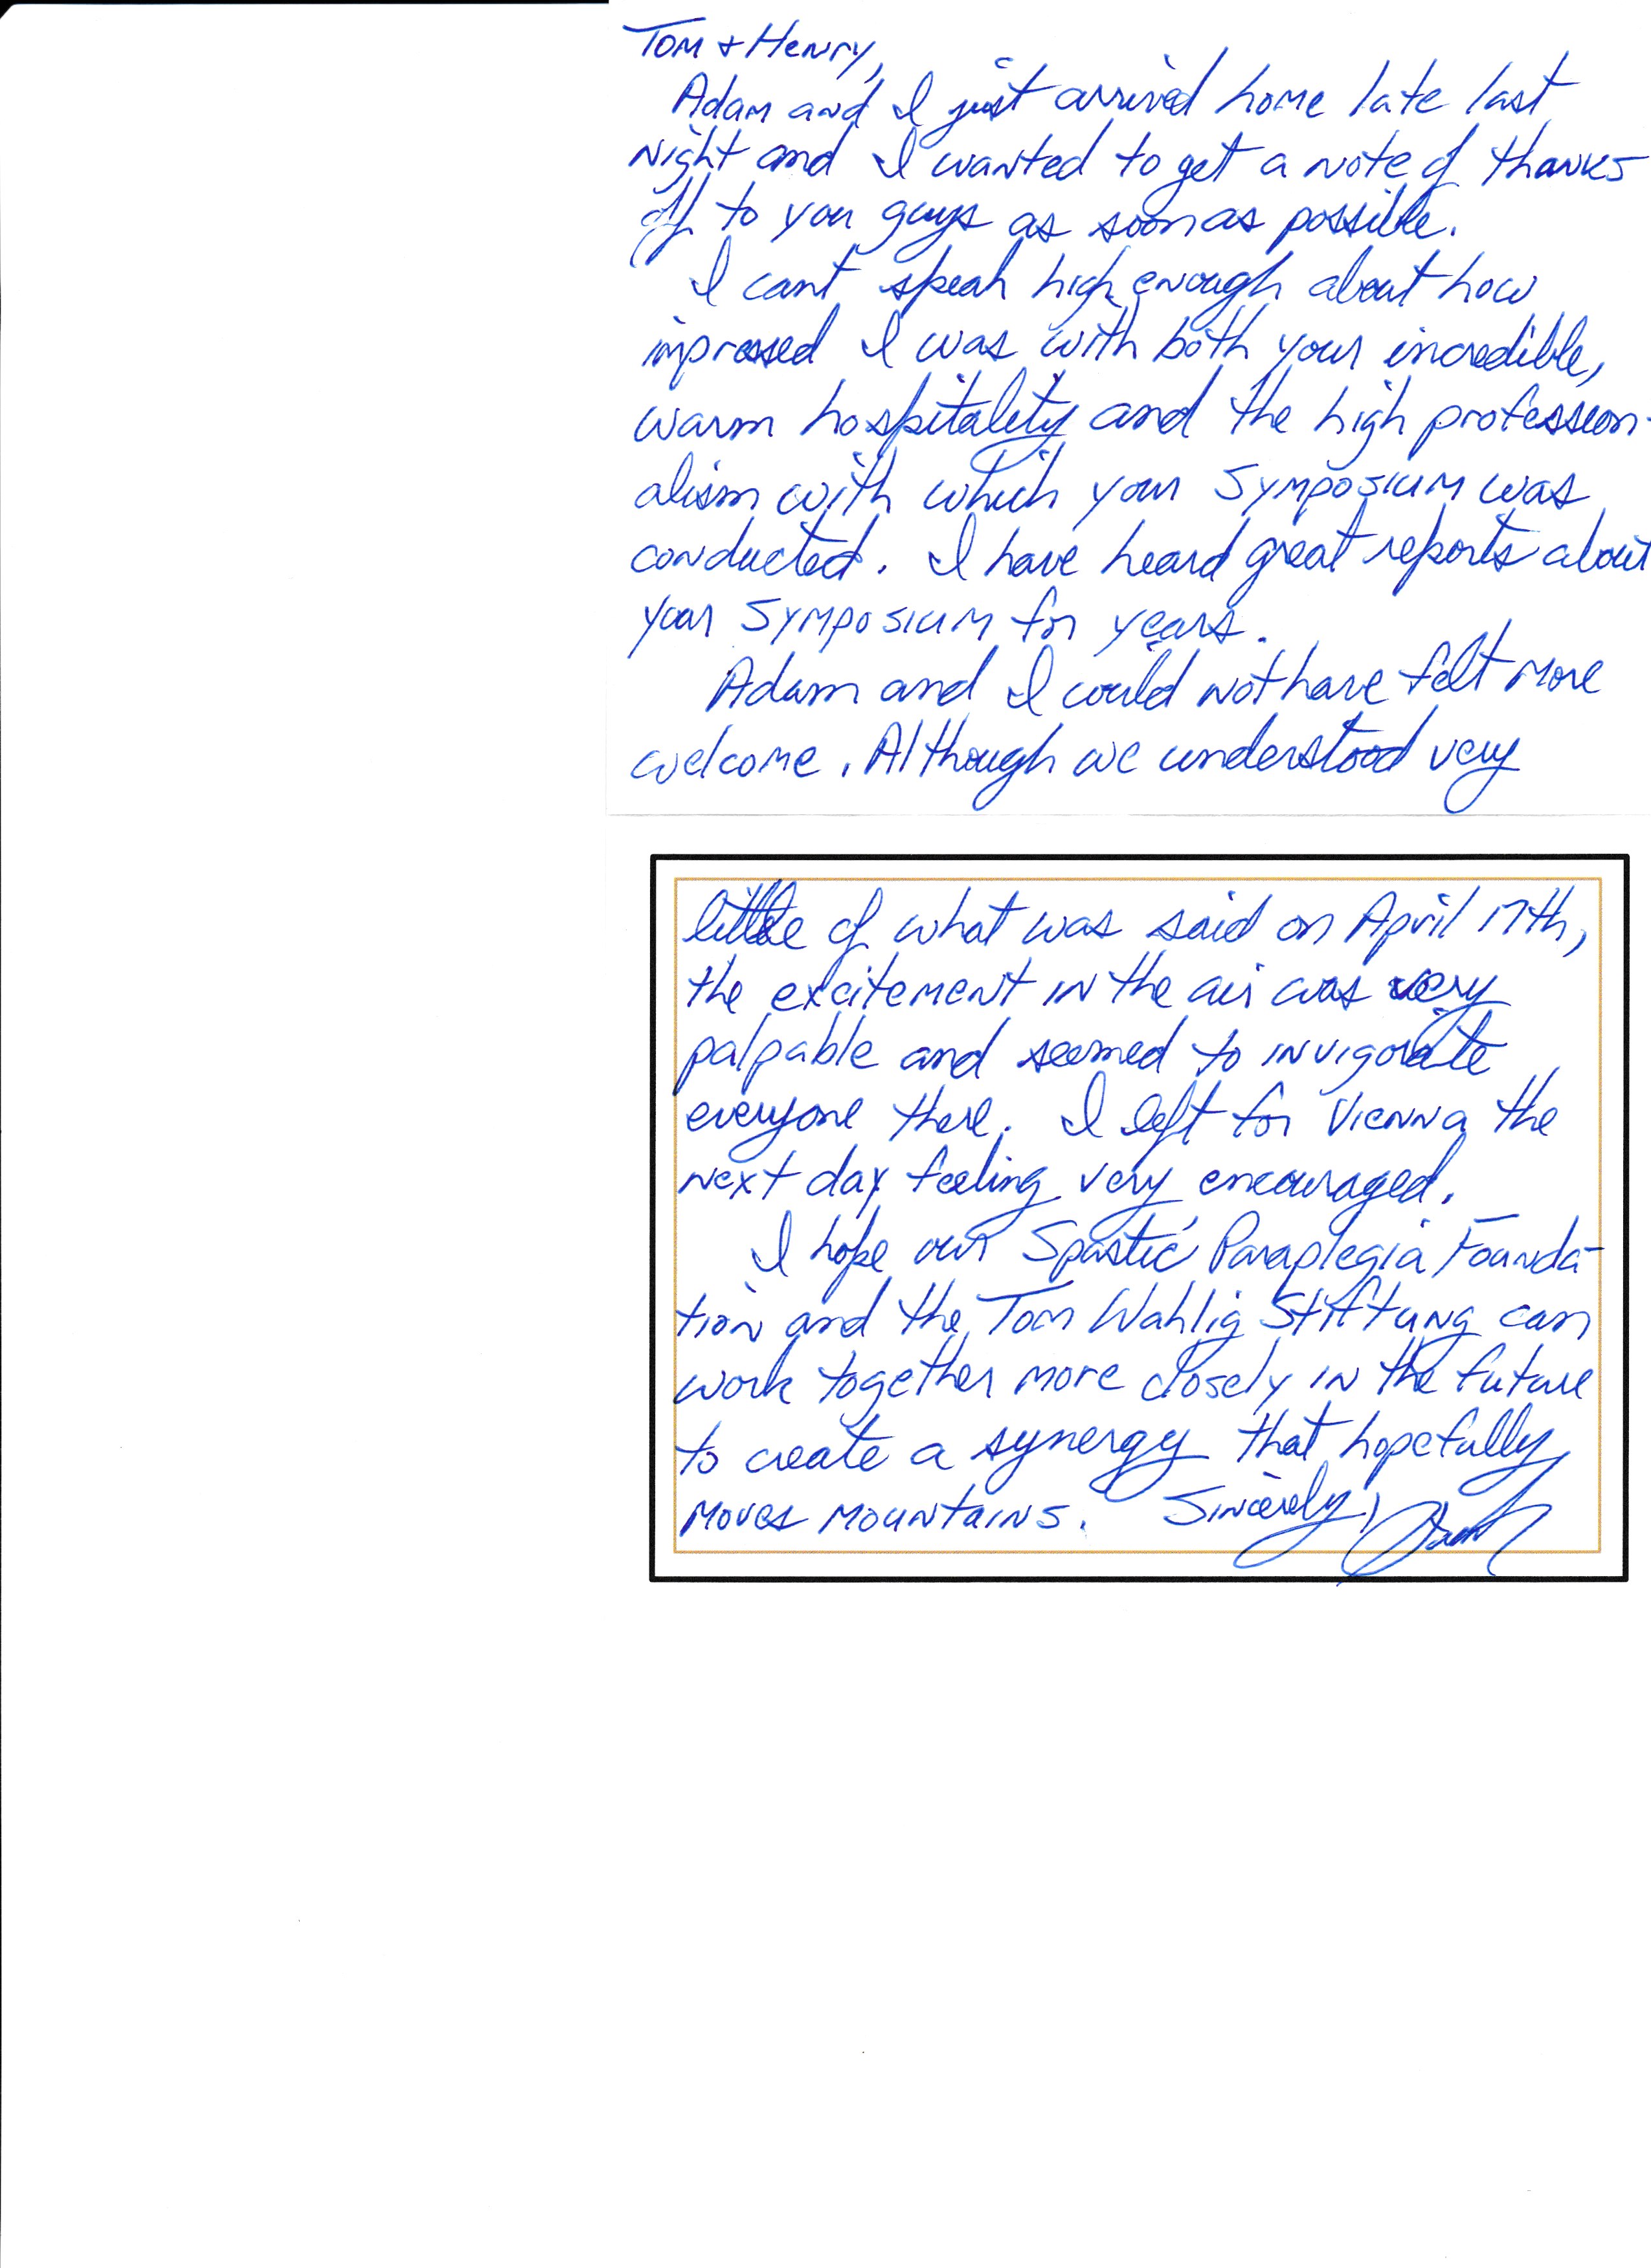 Tom + Henry,
Adam and I just arrived home late last
night and I wanted to get a note of thanks
off to you guys as soon as possible.
I can't speak high enough about how
impressed I was with both your incredible,
warm hospitality and the high profession-
alism with which your Symposium was
conducted. I have heard great reports about
your Symposium for years.
Adam and I could not have felt more
welcome. Although we understood very
little of what was said on April 17th,
the excitement in the air was very
palpable and seemed to invigorate
everyone there. I left for Vienna the
next day feeling very encouraged.
I hope our Spastic Paraplegia Founda-
tion and the Tom Wahlig Stiftung can
work together more closely in the future
to create a synergy that hopefully
moves mountains. Sincerely,